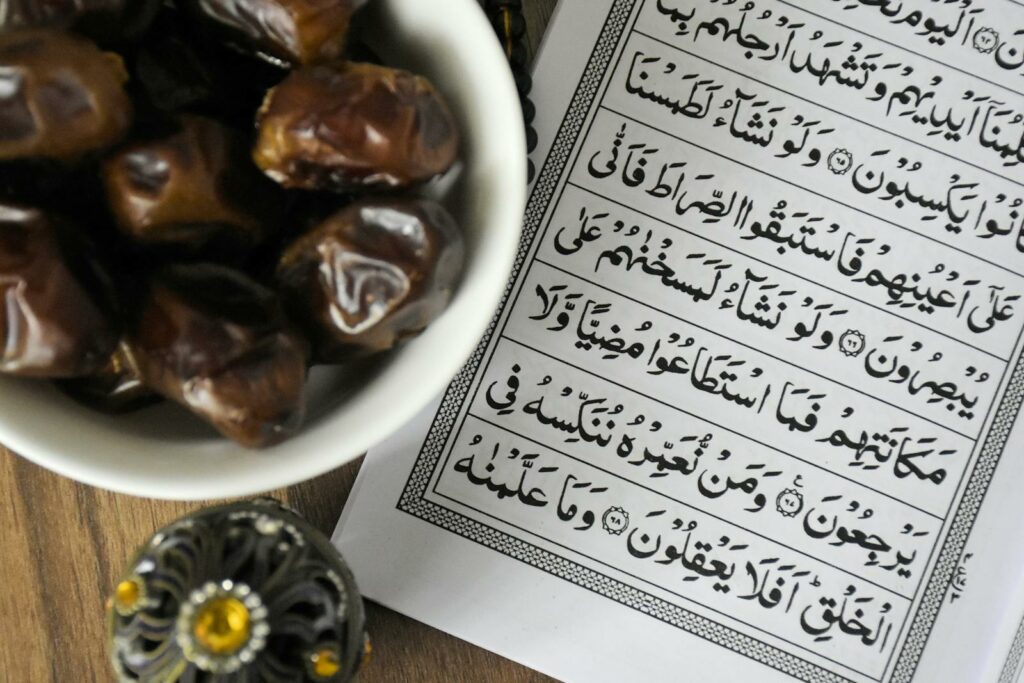 اَلْيَوْمَ
اَيْدِيْهِمْ وَتَشْهَدُ اَرْجُلُهُمْ بِمَا
كَانُوْا يَكْسِبُوْنَ ﴿۶۵﴾ وَلَوْ نَشَآءُ لَطَمَسْنَا
عَلٰۤى اَعْيُنِهِمْ فَاسْتَبَقُوا الصِّرَاطَ فَاَنّٰى
يُبْصِرُوْنَ ﴿۶۶﴾ وَلَوْ نَشَآءُ لَمَسَخْنٰهُمْ عَلٰى
مَكَانَتِهِمْ فَمَا اسْتَطَاعُوْا مُضِيًّا وَّلَا
يَرْجِعُوْنَ ﴿۶۷﴾ وَمَنْ نُّعَمِّرْهُ نُنَكِّسْهُ فِى
الْخَلْقِ ؕ اَفَلَا يَعْقِلُوْنَ ﴿۶۸﴾ وَمَا عَلَّمْنٰهُ